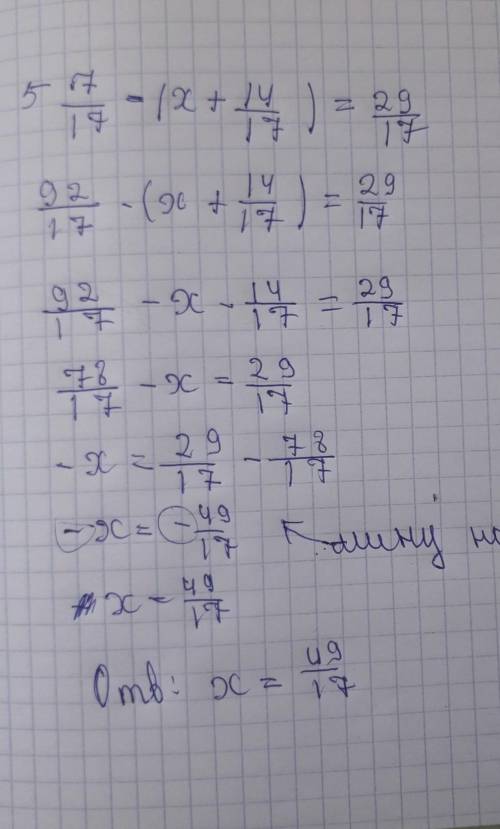 5 7/17 - (x + 14/17) = 29/17
92/17 - (x + 14/17) = 29/17
92/17 - x - 14/17 = 29/17
78/17 - x = 29/17
- x = 29/17 - 78/17
- x = - 49/17
x = 49/17
Отв: x = 49/17